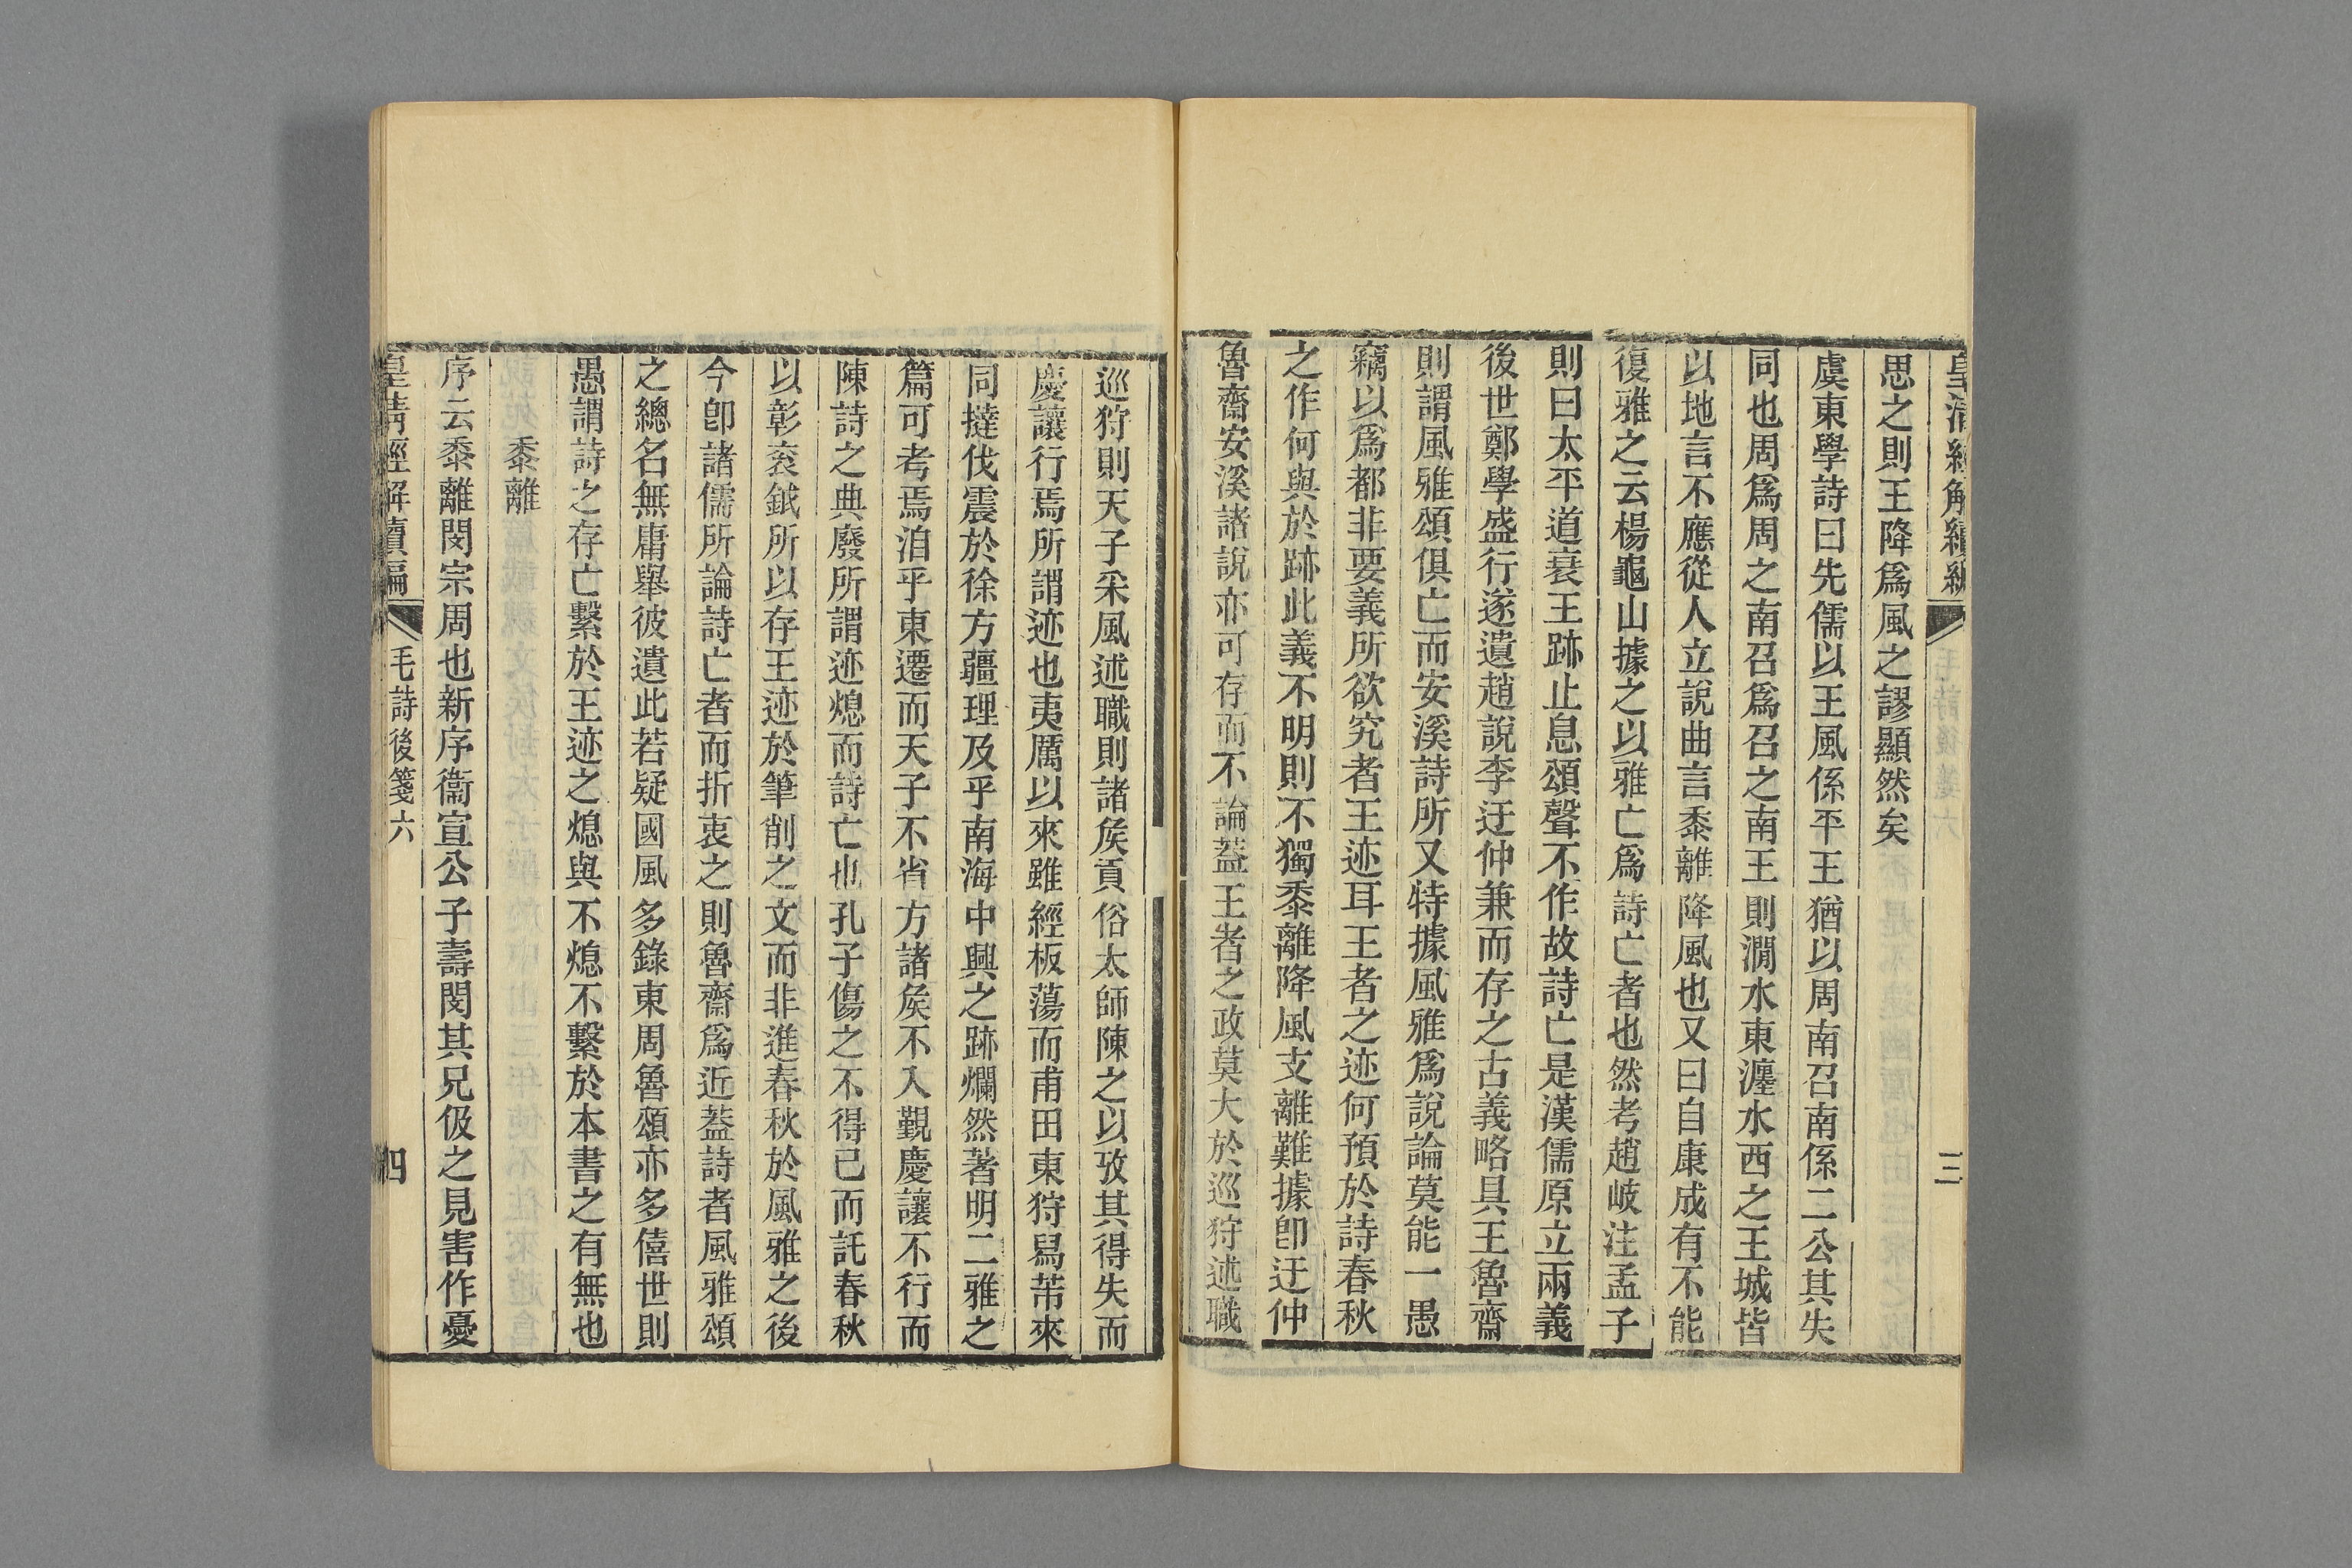 皇清經解續編
三
思之則王降爲風之謬顯然矣
虞東學詩曰先儒以王風係平王猶以周南召南係二公其失
同也周爲周之南召爲召之南王則澗水東瀍水西之王城皆
以地言不應從人立說曲言黍離降風也又曰自康成有不能
復雅之云楊龜山據之以雅亡爲詩亡者也然考趙岐注孟子
則曰太平道衰王跡止息頌聲不作故詩亡是漢儒原立兩義
後世鄭學盛行遂遺趙說李迂仲兼而存之古義略具王魯齋
則謂風雅頌俱亡而安溪詩所又特據風雅爲說論莫能一愚
竊以爲都非要義所欲究者王迹耳王者之迹何預於詩春秋
之作何與於跡此義不明則不獨黍離降風支離難據卽迂仲
魯齋安溪諸說亦可存而不論蓋王者之政莫大於巡狩述職
巡狩則天子采風述職則諸矦貢俗太師陳之以攷其得失而
慶讓行焉所謂迹也夷厲以來雖經板蕩而甫田東狩舄芾來
同撻伐震於徐方疆理及乎南海中興之跡爛然著明二雅之
篇可考焉洎乎東遷而天子不省方諸矦不入覲慶讓不行而
陳詩之典廢所謂迹熄而詩亡也孔子傷之不得已而託春秋
以彰袞鉞所以存王迹於筆削之文而非進春秋於風雅之後
今卽諸儒所論詩亡者而折衷之則魯齋爲近蓋詩者風雅頌
之總名無庸舉彼遺此若疑國風多錄東周魯頌亦多僖世則
愚謂詩之存亡繫於王迹之熄與不熄不繫於本書之有無也
黍離
序云黍離閔宗周也新序衞宣公子壽閔其兄伋之見害作憂
皇清經解續編
毛詩後箋六
四